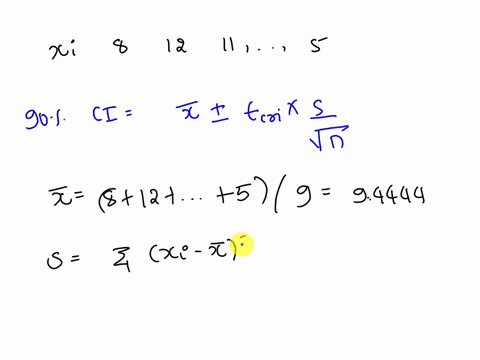 xi 8 12 11,..., 5
90% CI = x̄ ± tcri × s/√n
x̄ = (8+12+...+5)/9 = 9.4444
s = Σ (xi - x̄)